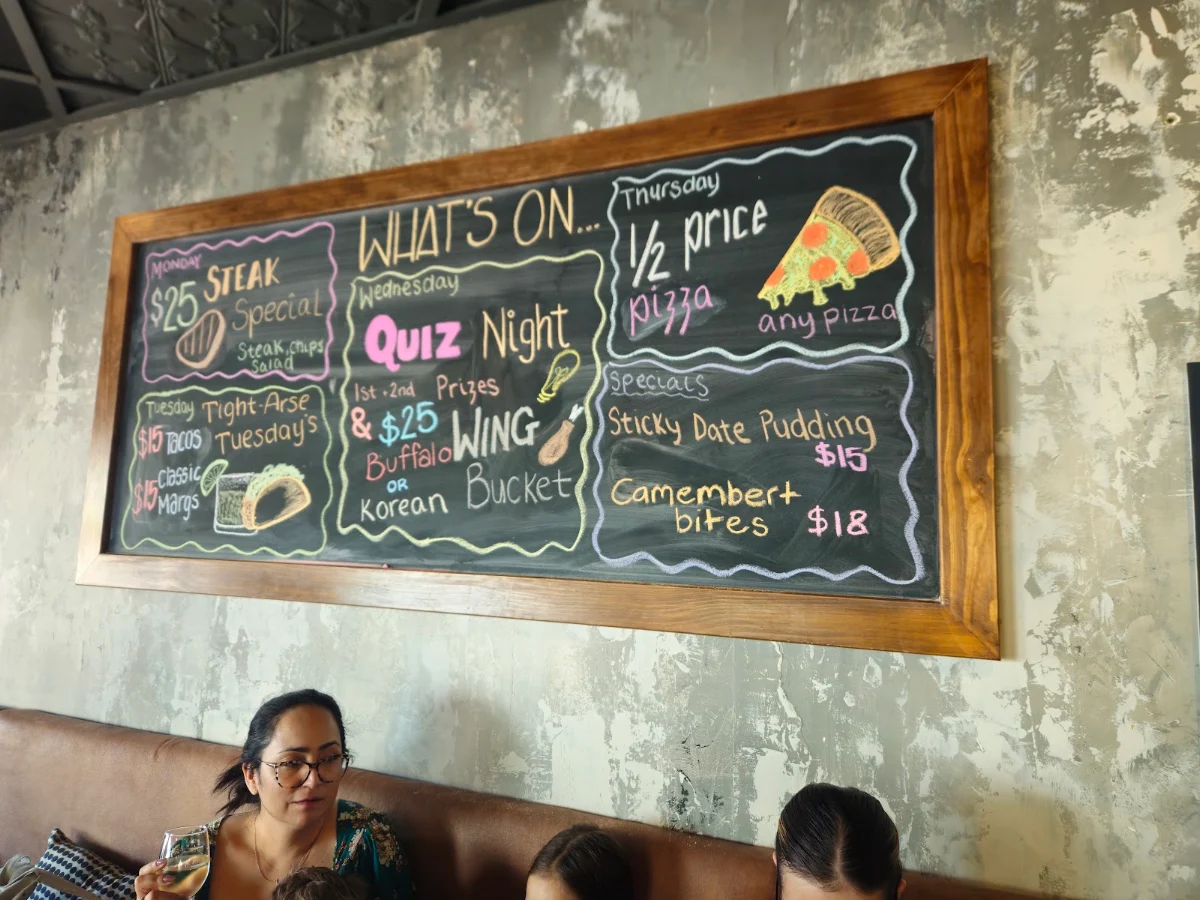 WHAT'S ON...
MONDAY
$25 STEAK
Special
Steak, chips
salad
Tuesday Tight-Arse
Tuesday's
$15 Tacos
$15 Classic
Margs
Wednesday
QUIZ Night
1st + 2nd Prizes
& $25 WING
Buffalo
OR
Korean Bucket
Thursday
1/2 price
pizza
any pizza
Specials
Sticky Date Pudding
$15
Camembert
bites $18